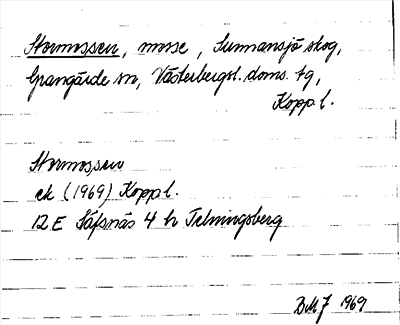 Stormossen, mosse, Sunnansjö skog,
Grangärde sn, Västerbergsl. doms. tg,
Kopp. l.
Stormossen
ek (1969) Kopp l.
12 E Säfsnäs 4 h Telningsberg
BMJ 1969